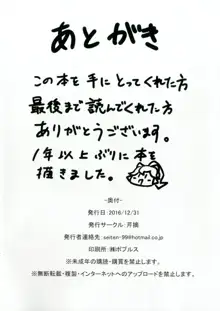 あとがき
この本を手にとってくれた方
最後まで読んでくれた方
ありがとうございます。
1年以上ぶりに本を
描きました。
~奥付~
発行日:2016/12/31
発行サークル:芹摘
発行者連絡先:seitan-99@hotmail.co.jp
印刷所:㈱ポプルス
※未成年の購読・購買を禁止します。
※無断転載・複製・インターネットへのアップロードを禁止します。